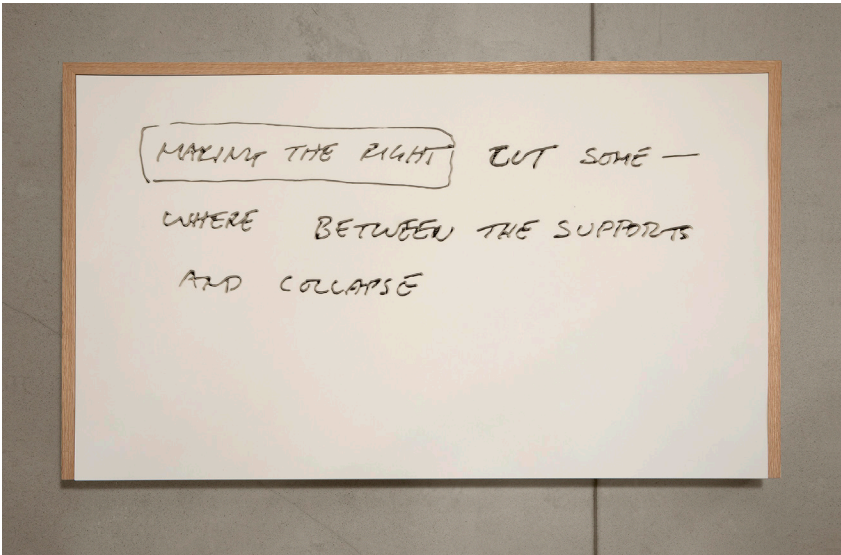 MAKING THE RIGHT CUT SOME—
WHERE BETWEEN THE SUPPORTS
AND COLLAPSE